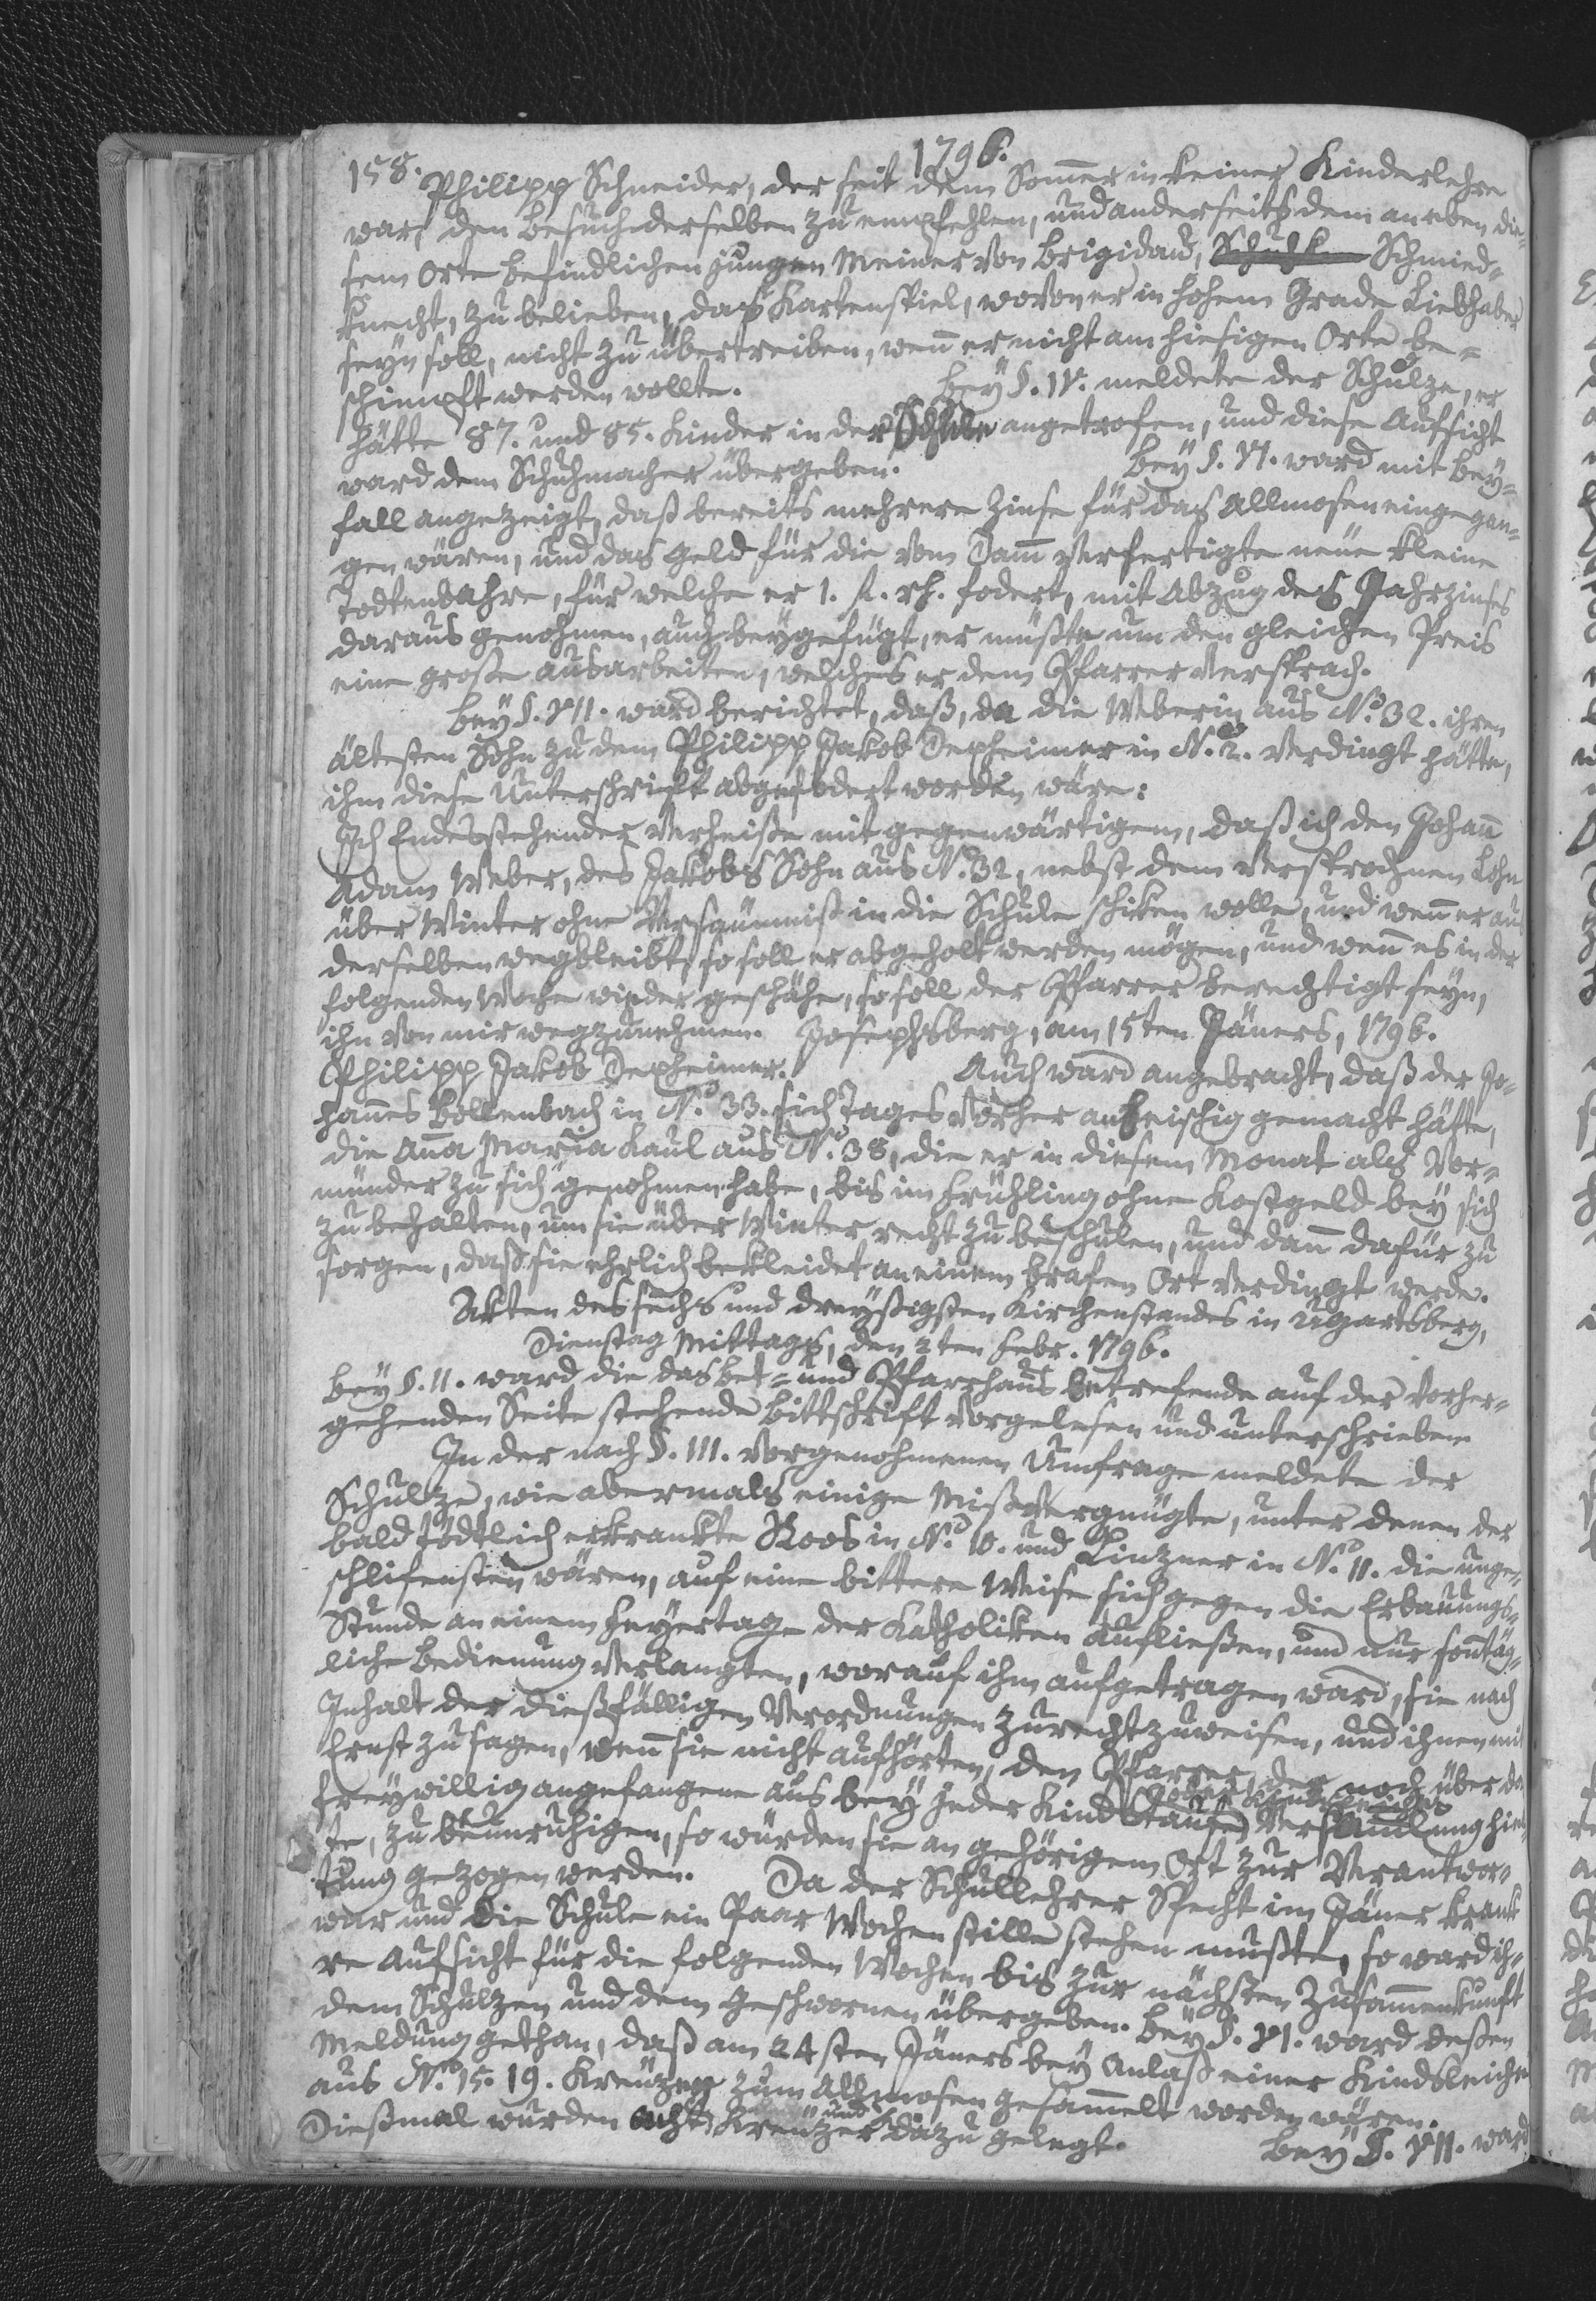 158. 1796.
Philipp Schneider, der seit dem Som̅er in keiner Kinderlehre
war, den Besuch derselben zu empfehlen, und anderseits dem an eben die-
sem Orte befindlichen jungen Meiner von Brigidau, Schmied-
knecht, zu belieben, das Kartenspiel, wovon er in hohem Grade Liebhaber
seyn soll, nicht zu übertreiben, wen̅ er nicht am hiesigen Orte be-
schimpft werden wollte. Bey §. IV. meldete der Schulze, er
hätte 87. und 85. Kinder in der Schule angetrofen, und diese Aufsicht
ward dem Schuhmacher übergeben. Bey §. VI. ward mit Bey-
fall angezeigt, daß bereits mehrere Zinse für das Allmosen eingegan-
gen wären, und das Geld für die vom Dam̅ verfertigte neue kleine
Todtenbahre, für welche er 1. fl. rh. fodert, mit Abzug des Jahrzinses
daraus genohmen, auch beygefügt, er müßte um den gleichen Preis
eine große ausarbeiten, welches er dem Pfarrer versprach.
Bey §. VII. ward berichtet, daß, da die Weberin aus No. 32. ihren
ältesten Sohn zu dem Philipp Jakob Dexheimer in N. 2. verdingt hätte,
ihm diese Unterschrift abgefodert worden wäre:
Ich Endesstehender verheiße mit gegenwärtigem, daß ich den Johan̅
Adam Weber, des Jakobs Sohn aus No. 32, nebst dem versprochnen Lohn
über Winter ohne Versäumniß in die Schule schiken wolle, und wen̅ er aus
derselben wegbleibt, so soll er abgeholt werden mögen, und wen̅ es in der
folgenden Woche wieder geschähe, so soll der Pfarrer berechtigt seyn,
ihn von mir wegzunehmen. Josephsberg, am 15ten Jäners, 1796.
Philipp Jakob Dexheimer. Auch ward angebracht, daß der Jo-
han̅es Bollenbach in No. 33. sich Tages vorher anheischig gemacht hätte,
die An̅a Maria Kaul aus No. 38, die er in diesem Monat als Vor-
münder zu sich genohmen habe, bis im Frühling ohne Kostgeld bey sich
zu behalten, um sie über Winter recht zu beschulen, und dan̅ dafür zu
sorgen, daß sie ehrlich bekleidet an einem brafen Ort verdingt werde.
Akten des sechs und dreyßigsten Kirchenstandes in Ugartsberg,
Dienstag Mittags, den 2ten Febr. 1796.
Bey §. II. ward die das Bet- und Pfarrhaus betrefende auf der vorher-
gehenden Seite stehende Bittschrift vorgelesen und unterschrieben
In der nach §. III. vorgenohmenen Umfrage meldete der
Schulze, wie abermals einige Mißvergnügte, unter denen der
bald tödtlich erkrankte Roos in No. 10. und Linzner in No. 11. die unge-
schlifensten wären, auf eine bittere Weise sich gegen die Erbauungs-
Stunde an einem Feyertage der Katholiken aufließen, und nur son̅täg-
liche Bedienung verlangten, worauf ihm aufgetragen ward, sie nach
Inhalt der dießfälligen Verordnungen zurechtzuweisen, und ihnen mit
Ernst zu sagen, wen̅ sie nicht aufhörten, den Pfarrer, der noch über das
freywillig angefangene aus bey jeder Kindstaufe Versam̅lung hiel-
te, zu beunruhigen, so würden sie an gehörigem Ort zur Verantwor-
tung gezogen werden. Da der Schullehrer Specht im Jäner krank
war und die Schule ein Paar Wochen stille stehen mußte, so ward ih-
re Aufsicht für die folgenden Wochen bis zur nächsten Zusam̅enkunft
dem Schulzen und dem Geschwornen übergeben. Bey §. VI. ward deßen
Meldung gethan, daß am 24sten Jäners bey Anlaß einer Kindsleiche
aus No. 15. 19. Kreuzer zum Allmosen gesam̅elt worden wären.
Dießmal wurden acht Kreuzer dazu gelegt. Bey §. VII. ward